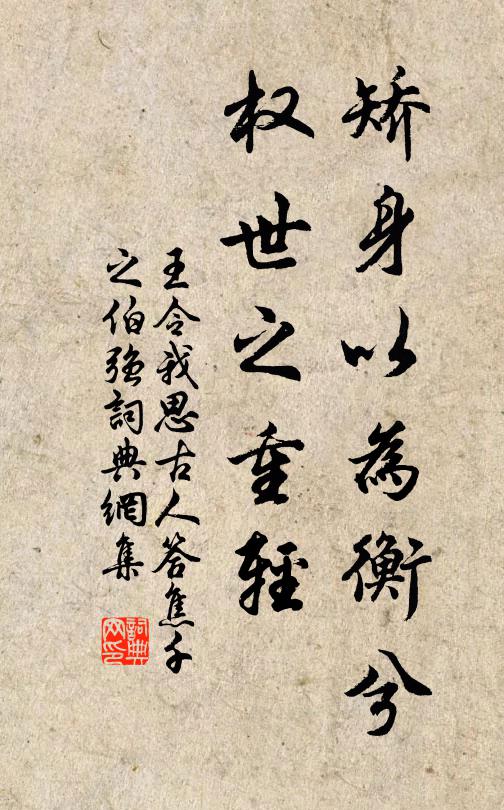 矫身以為衡兮
权世之重輕
王令我思古人答焦千
之伯強詞典網集
詞典
网印